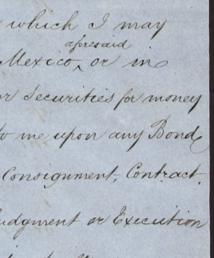 which I may
aforesaid
Mexico, or in
or Securities for money
to me upon any Bond
Consignment, Contract.
Judgment or Execution